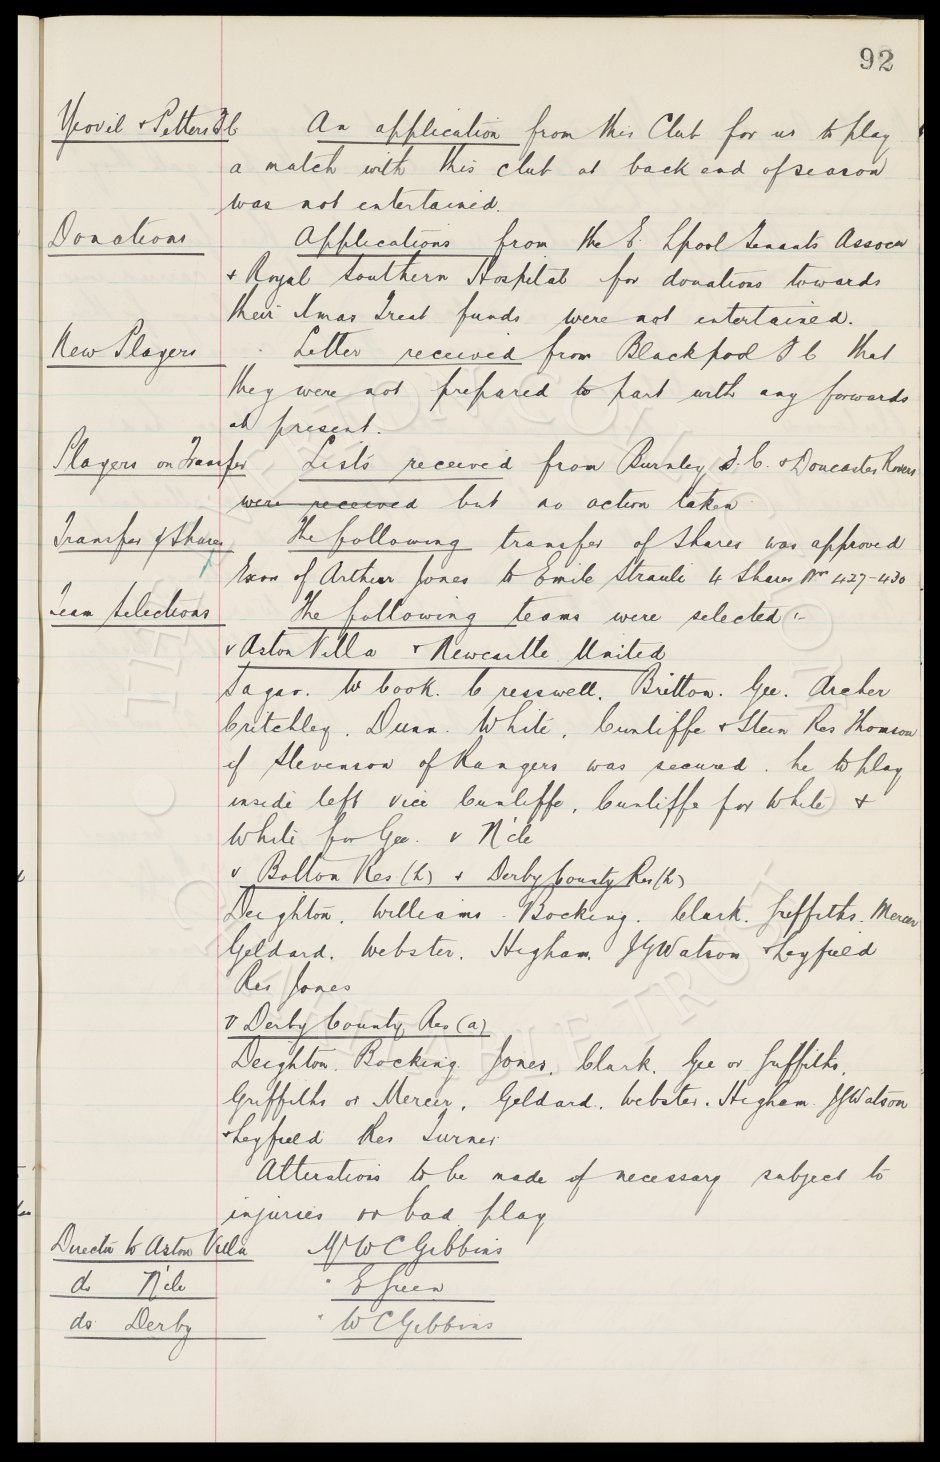 92
Yeovil & Petters F C An application from this Club for us to play
a match with this club at back end of season
was not entertained.
Donations Applications from the E. Lpool Tenants Assocn
& Royal Southern Hospital for donations towards
their Xmas Treat funds were not entertained.
New Players Letter received from Blackpool F C that
they were not prepared to part with any forwards
at present.
Players on Transfer Lists received from Burnley F.C. & Doncaster Rovers
were received but no action taken
Transfer of Shares The following transfer of shares was approved
Exors of Arthur Jones to Emile Strauli 4 Shares Nos 427-430
Team Selections The following teams were selected :-
v Aston Villa & Newcastle United
Sagar. W Cook. Cresswell. Britton. Gee. Archer
Critchley. Dunn. White. Cunliffe & Stein Res Thomson
if Stevenson of Rangers was secured. he to play
inside left vice Cunliffe, Cunliffe for White &
White for Gee. v N'cle
v Bolton Res. (h) & Derby County Res (h)
Deighton. Williams. Bocking. Clark. Griffiths. Mercer
Geldard. Webster. Higham. J G Watson & Leyfield
Res Jones
v Derby County Res (a)
Deighton. Bocking. Jones. Clark. Gee or Griffiths.
Griffiths or Mercer. Geldard. Webster. Higham. J G Watson
& Leyfield Res Turner
Alterations to be made if necessary subject to
injuries or bad play
Director to Aston Villa Mr W C Gibbins
do N'cle " E Green
do Derby " W C Gibbins